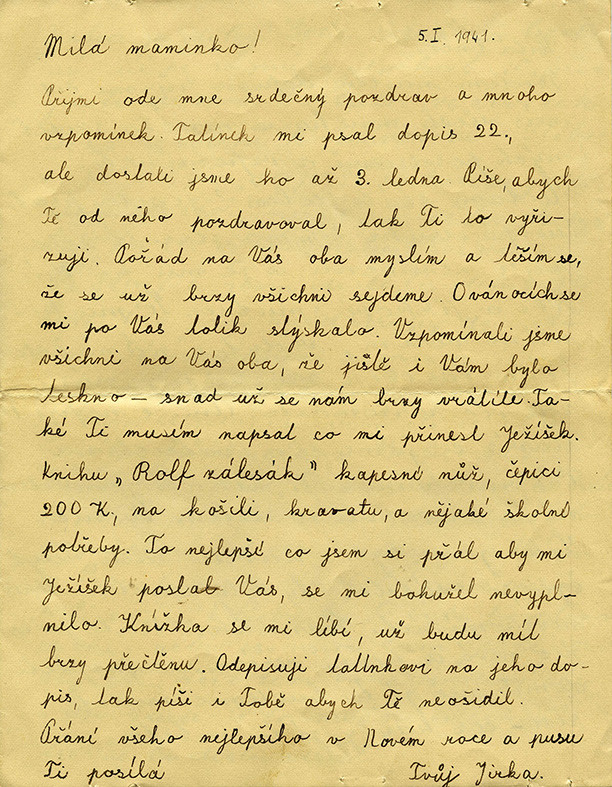 5.I. 1941.
Milá maminko!
Přijmi ode mne srdečný pozdrav a mnoho
vzpomínek. Tatínek mi psal dopis 22.,
ale dostali jsme ho až 3. ledna. Píše, abych
Tě od něho pozdravoval, tak Ti to vyři-
zuji. Pořád na Vás oba myslím a těším se,
že se už brzy všichni sejdeme. O vánocích se
mi po Vás tolik stýskalo. Vzpomínali jsme
všichni na Vás oba, že jistě i Vám bylo
teskno – snad už se nám brzy vrátíte. Ta-
ké Ti musím napsat co mi přinesl Ježíšek.
Knihu „Rolf zálesák" kapesní nůž, čepici
200 K., na košili, kravatu, a nějaké školní
potřeby. To nejlepší co jsem si přál aby mi
Ježíšek poslal Vás, se mi bohužel nevypl-
nilo. Knížka se mi líbí, už budu mít
brzy přečtěnu. Odepisuji tatínkovi na jeho do-
pis, tak píši i Tobě abych Tě neošidil.
Přání všeho nejlepšího v Novém roce a pusu
Ti posílá Tvůj Jirka.